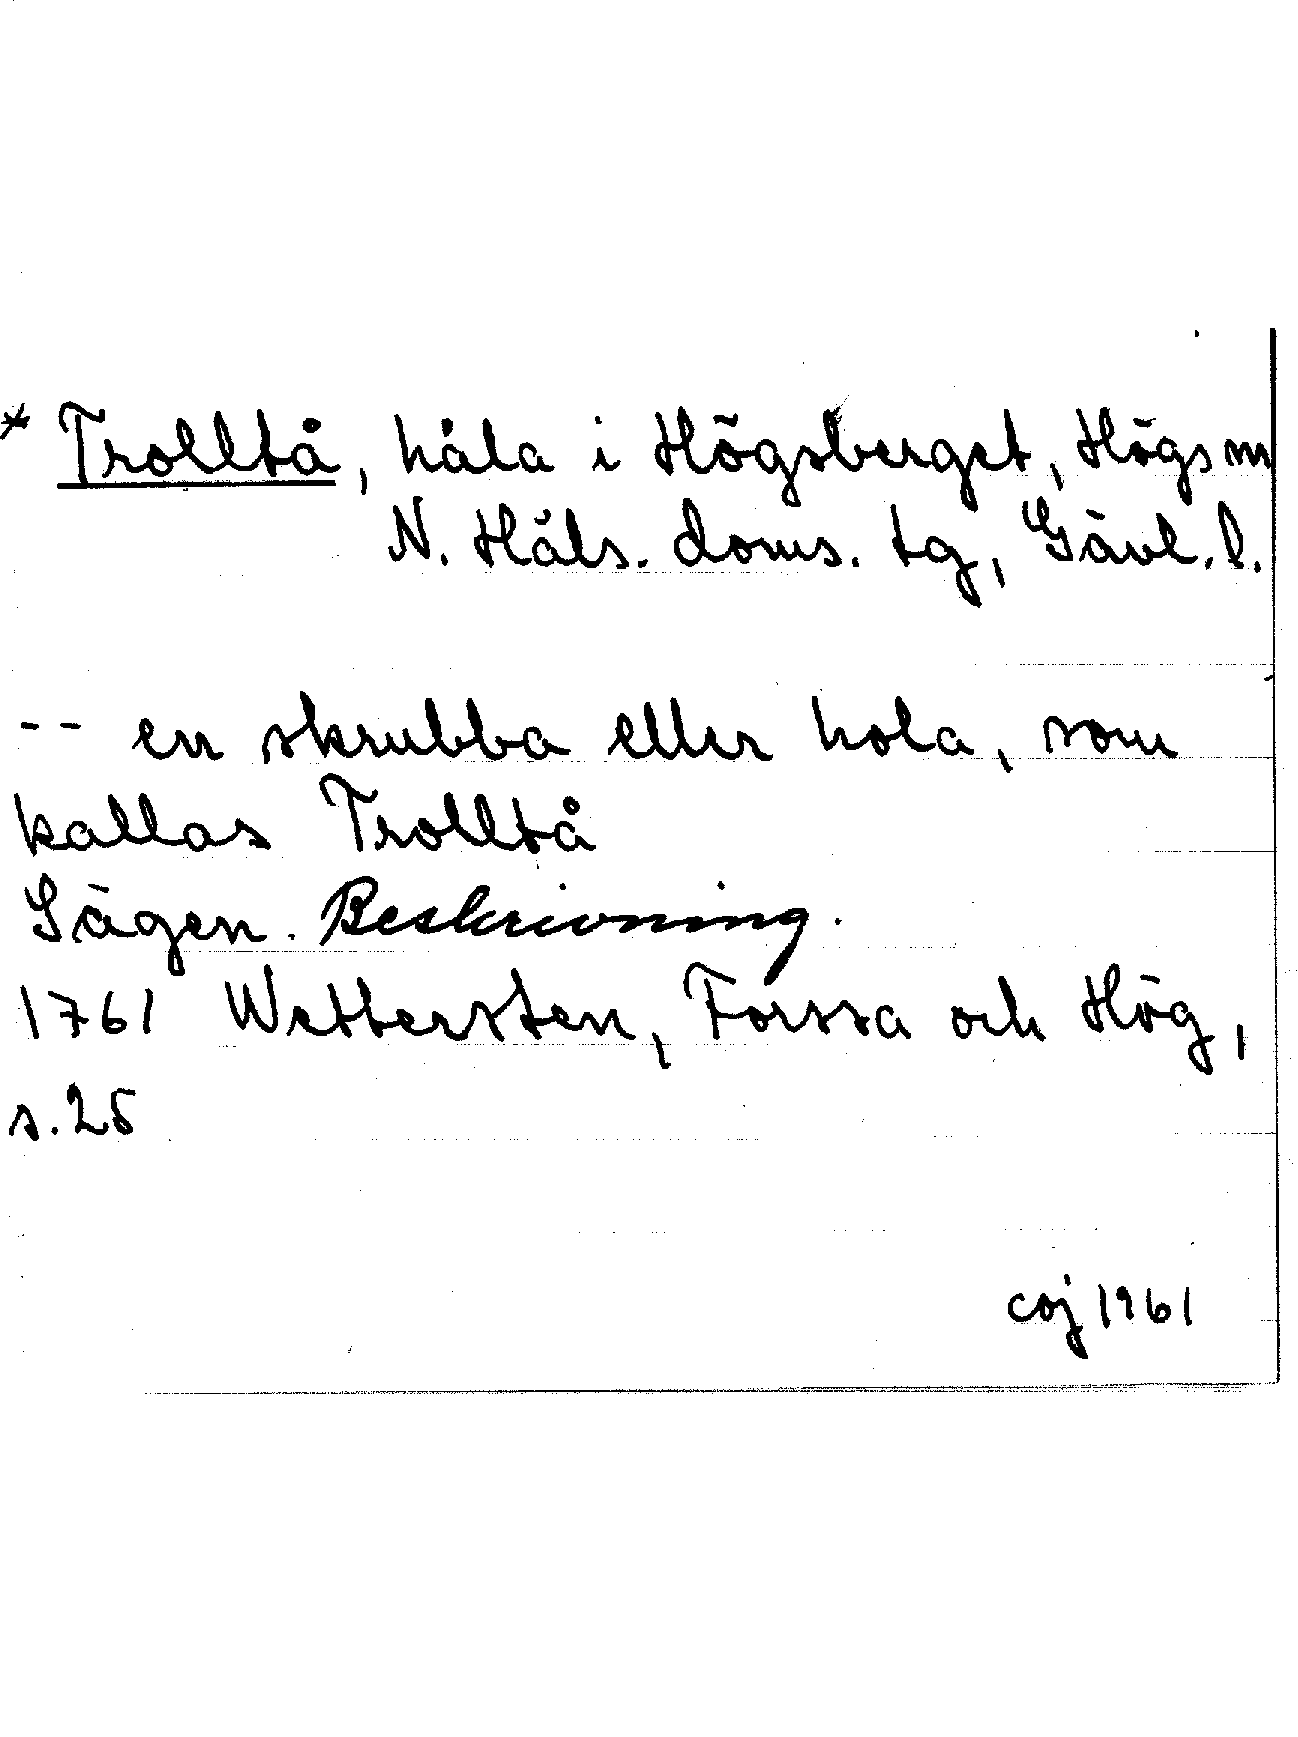 * Trolltå, håla i Högsberget, Högs m
N. Häls. doms. tg, Gävl. l.
-- en skrubba eller hola, som
kallas Trolltå
Sägen. Beskrivning.
1761 Wettersten, Forssa och Hög,
s. 25
coj 1961